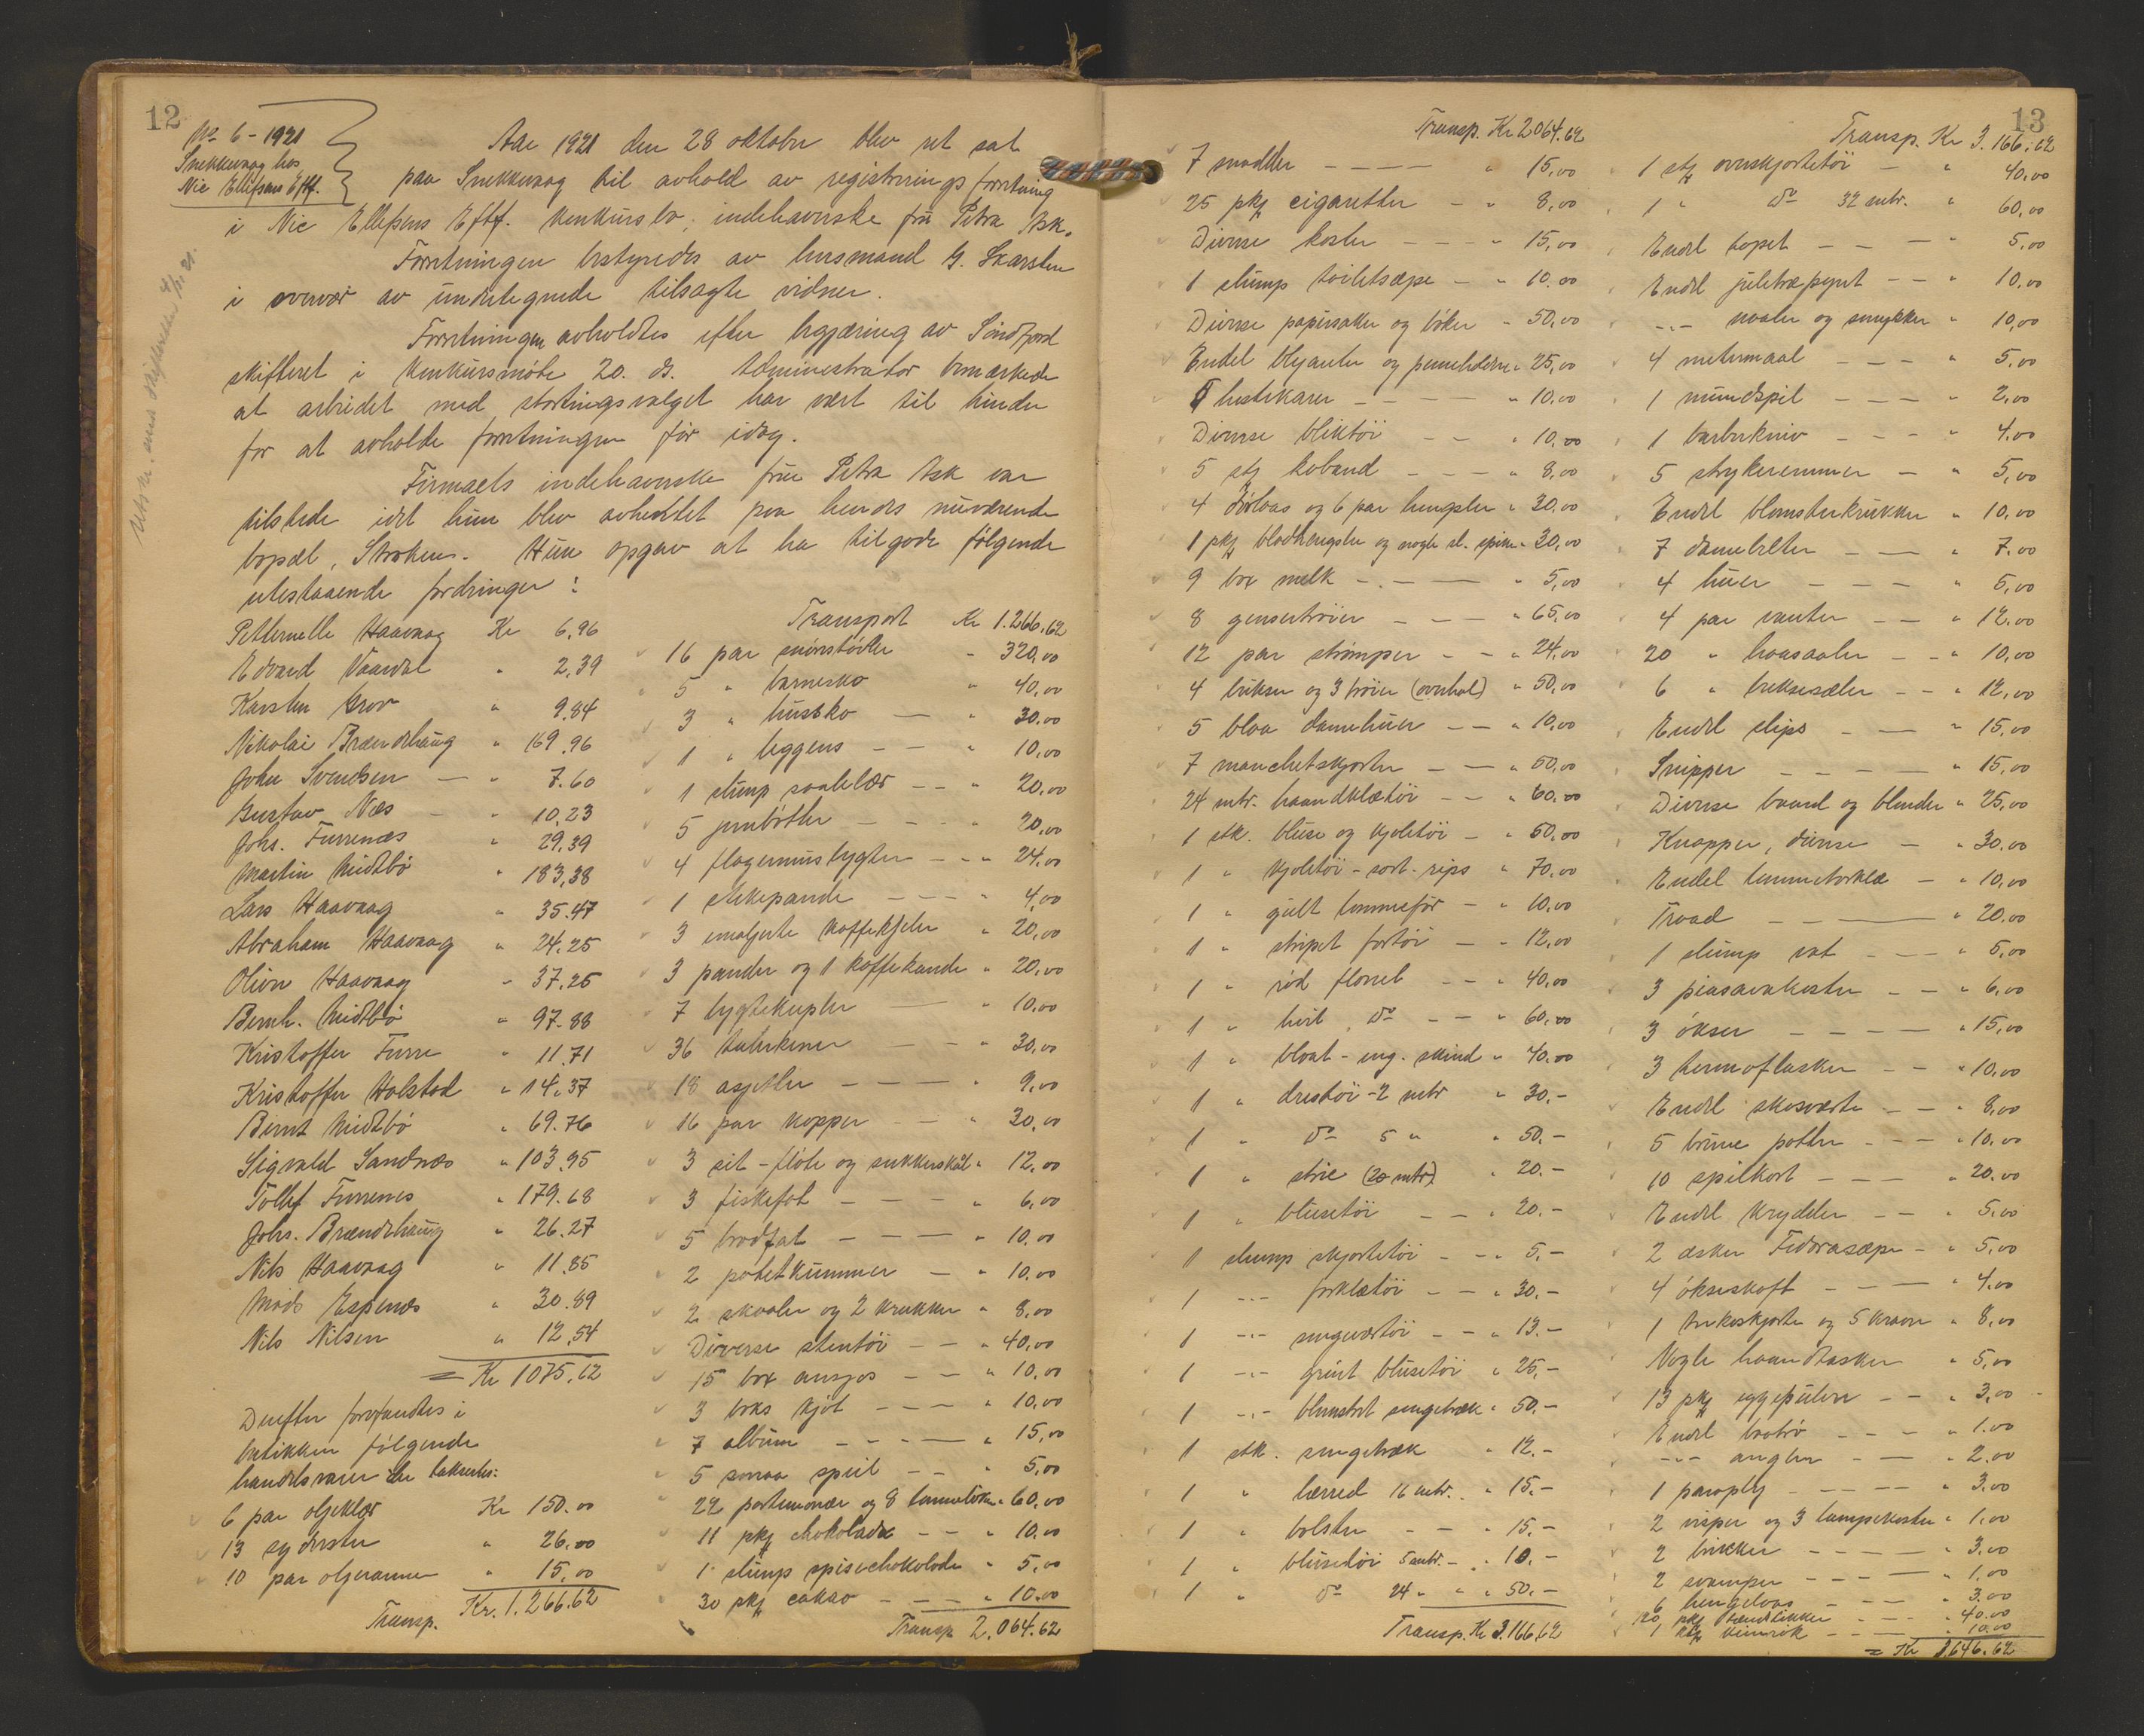 12
No 6 - 1921
Snekkevaag hos
Nic Ellefsens Eftf.
Aar 1921 den 28 oktober blev ret sat
paa Snekkevaag til avhold av registreringsforretning
i Nic Ellefsens Eftf. konkursbo, indehaverske fru Petra Ask.
Forretningen bestyredes av lensmand G. Skarsten
i overvær av undertegnede tilsagte vidner.
Forretningen avholdtes efter begjæring av Søndfjord
skifteret i konkursmøte 20. ds. Administrator bemærkede
at arbeidet med stortingsvalget har vært til hinder
for at avholde forretningen før idag.
Firmaets indehaverske frue Petra Ask var
tilstede idet hun blev avhentet paa hendes nuværende
bopæl, Stroken. Hun opgav at ha tilgode følgende
utestaaende fordringer:
Petternelle Haavaag Kr 6,96
Edvard Vaardal " 2,39
Karsten Grov " 9.84
Nikolai Brændehaug " 169.96
John Svendsen — " 7.60
Gustav Næs — " 10,23
Johs. Furrenæs " 29,39
Martin Midtbø " 183,38
Lars Haavaag " 35.47
Abraham Haavaag " 24.25
Oliver Haavaag " 37.25
Bernh. Midtbø " 97.88
Kristoffer Furre " 11.71
Kristoffer Holstad " 14,37
Bernt Midtbø " 69.76
Sigvald Sandnæs " 103.95
Tollef Furrenes " 179.68
Johs. Brændehaug " 26.27
Nils Haavaag " 11.85
Mads Espenæs " 30.89
Nils Nilsen " 12,54
= Kr 1075,62
Derefter forefandtes i
butikken følgende
handelsvarer der taksertes:
6 par oljeklær Kr 150.00
13 sydvester " 26,00
10 par oljeærmer " 15,00
Transp. Kr. 1.266.62
Transport Kr 1.266.62
16 par snørestøvler " 320,00
5 " barnesko " 40,00
3 " hussko — " 30.00
1 " leggens — — " 10,00
1 slump saalelær — — " 20,00
5 jernbøtter — — — " 20,00
4 flagermuslygter — — " 24,00
1 stekepande — — — " 4,00
3 emaljerte kaffekjeler " 20,00
3 pander og 1 kaffekande " 20,00
7 lygtekupler — " 10.00
36 talerkener — — " 30,00
18 asjetter — — — " 9.00
16 par kopper — — " 30,00
3 set - fløte og sukkerskål " 12,00
3 fiskefat — — — " 6,00
5 brødfat — — — " 10.00
2 potetkummer — " 10,00
2 skaaler og 2 krukker " 8,00
Diverse stentøi — — " 40,00
15 box ansjos — — " 10,00
3 boks kjøt — — — " 10,00
7 album — — — " 15,00
5 smaa speil — — " 5,00
22 portemonær og 8 lommebøker " 60,00
11 pkj chokolade — — " 10,00
1 slump spisechokolade " 5,00
30 pkj cakao — — — " 10.00
Transp 2.064.62
13
Transp. Kr 2 064.62
7 " 15,00
25 pkj cigaretter — " 8,00
Diverse koster — — — " 15,00
1 slump toiletsæpe — " 10.00
Diverse papirsaker og bøker " 50,00
Endel blyanter og penneholdere " 25,00
hestekarer — — — " 10.00
Diverse bliktøi — — " 10,00
5 stj koband — — — " 8,00
4 dørlaas og 6 par hengsler " 30,00
1 pkj bladhengsler og nogle sl. spiker " 30,00
9 box melk — — — " 5,00
8 gensertrøier — — — " 65,00
12 par strømper — — " 24,00
4 bukser og 3 trøier (overhal) " 50,00
5 blaa damehuer — — " 10,00
7 manchetskjorter — — " 50,00
24 mtr. haandklætøi — — " 60.00
1 stk. bluse og kjoletøi — " 50,00
1 " kjoletøi - sort - rips " 70.00
1 " gult lommefór — " 10.00
1 " stripet fortøi — — " 12,00
1 " rød flonel — — " 40,00
1 " hvit do — — " 60.00
1 " blaat - eng. skind " 40.00
1 " drestøi - 2 mtr " 30.-
1 " do 5 " " 50.-
1 " strie (20 mtr) " 20.-
1 " blusetøi — — " 20.-
1 slump skjortetøi — — " 5.-
1 -"- forklætøi — — " 30.-
1 -"- sengevartøi — — " 13.-
1 -"- grønt blusetøi " 25,-
1 -"- blomstret sengetræk " 50.-
1 stk. sengetræk " 12.-
1 " lærred 16 mtr. " 15.-
1 " bolster — — " 15.-
1 " blusetøi 5 mtr. — " 10.-
1 " do 24 " " 50.-
Transp. Kr 3.166,62
Transp. Kr 3.166,62
1 stj overskjortetøi — " 40,00
1 " do 32 mtr. " 60,00
Endel tapet — — — " 5,00
Endel juletræpynt — — " 10,00
-"- naaler og smykker " 10,00
4 metermaal — — — " 5,00
1 mundspil — — — " 2,00
1 barberkniv — — — " 4.00
5 strykeremmer — " 5,00
Endel blomsterkrukker " 10,00
7 damebelter — — " 7.00
4 huer — — — " 5,00
4 par vanter — — " 12,00
20 " haasaaler — — " 10,00
6 " bukseseler — — " 12,00
Endel slips — — " 15,00
Snipper — — — — " 15,00
Diverse baand og blonder " 25,00
Knapper, diverse — " 30.00
Endel lommetørklæ — " 10,00
Traad — — " 20.00
1 slump vat — — — " 5,00
3 piasavakoster — — " 6,00
3 økser — — — — " 15,00
3 termoflasker — — " 10,00
Endel skosværte — — " 8,00
5 brune potter — — — " 10.00
10 spilkort — — — " 20.00
Endel krydder — — " 5,00
2 æsker Fedorasæpe — " 5,00
4 økseskaft — — — " 4.00
1 og 5 kraver " 8,00
Nogle haandtasker " 5,00
13 pkj eggepulver — — " 3,00
Endel — — — " 1.00
-"- angler — — " 2.00
1 paraply — — — — " 3.00
2 visper og 3 lampekoster " 1,00
2 — — — — " 3.00
2 svamper — — — — " 1,00
6 hengelaas — — — " 3.00
20 pkj " 40.00
1 " 10.00
= Kr 3.646.62